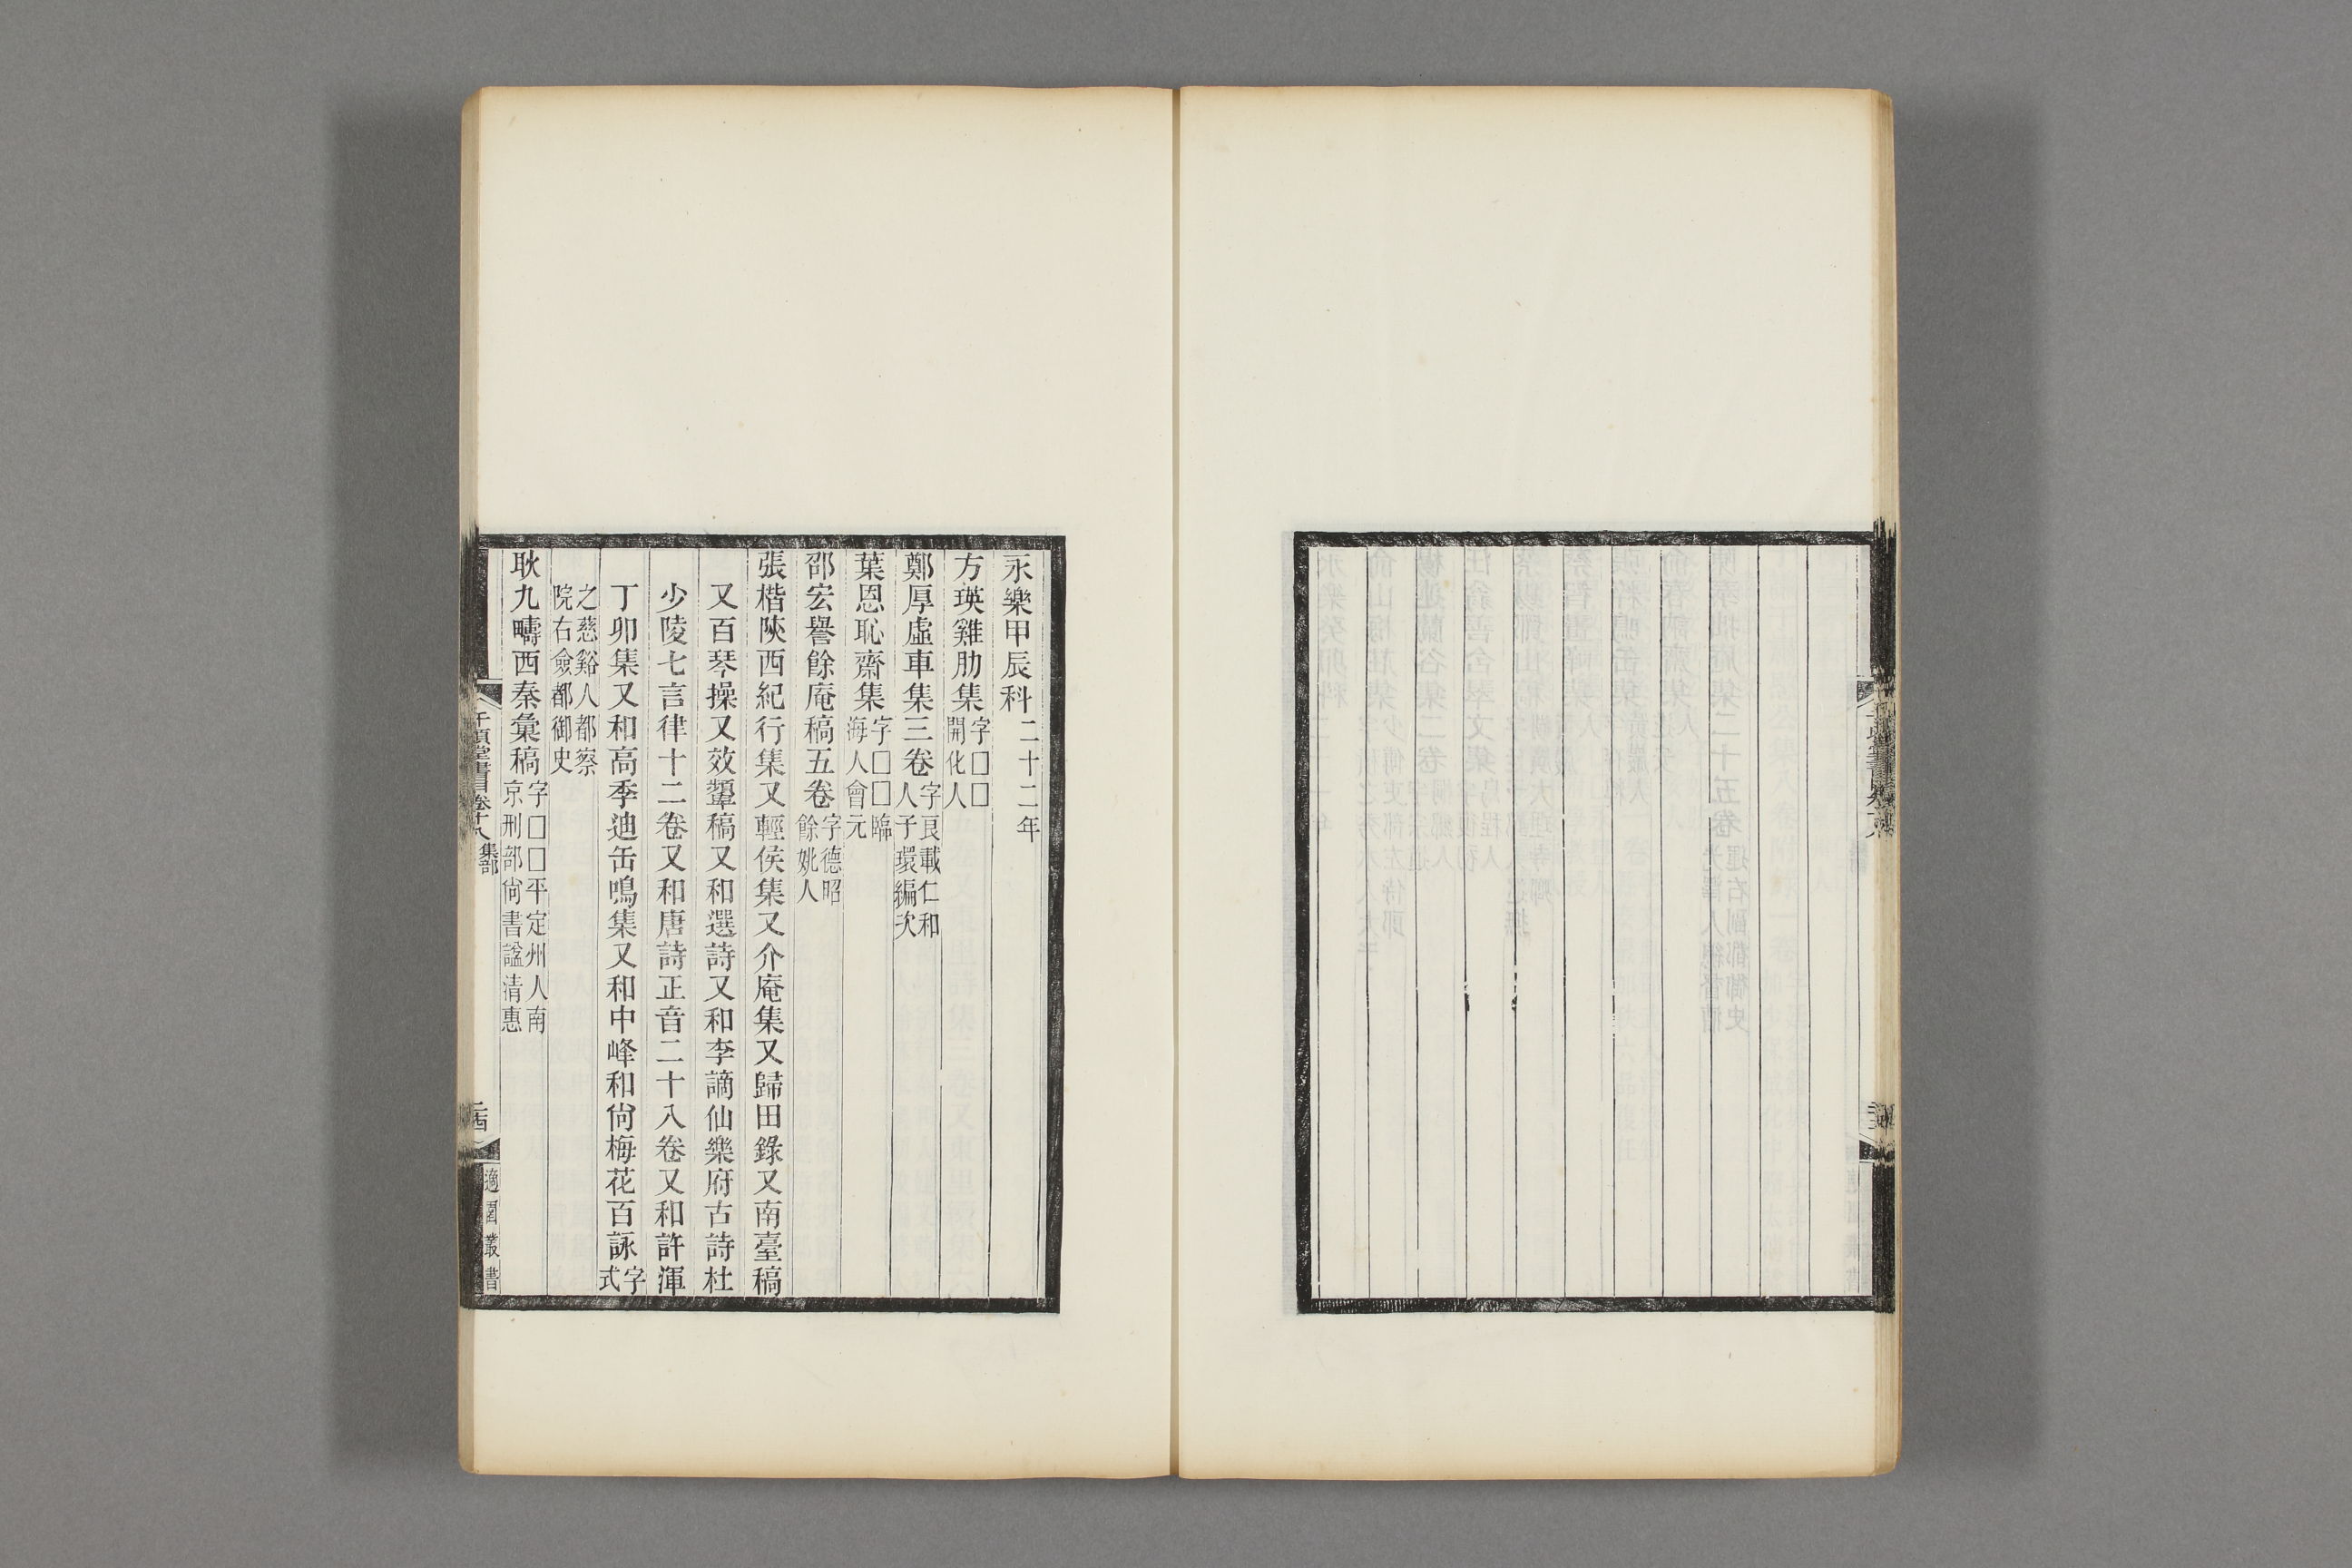 永樂甲辰科二十二年
方瑛雞肋集字□□開化人
鄭厚虛車集三卷字艮載仁和人子環編次
葉恩恥齋集字□□臨海人會元
邵宏譽餘庵稿五卷字德昭餘姚人
張楷陝西紀行集又輕侯集又介庵集又歸田錄又南臺稿
又百琴操又效顰稿又和選詩又和李謫仙樂府古詩杜
少陵七言律十二卷又和唐詩正音二十八卷又和許渾
丁卯集又和高季迪缶鳴集又和中峰和尙梅花百詠字式
之慈谿人都察院右僉都御史
耿九疇西秦彙稿字□□平定州人南京刑部尙書諡清惠
千頃堂書目卷十八集部
二十四
適園叢書